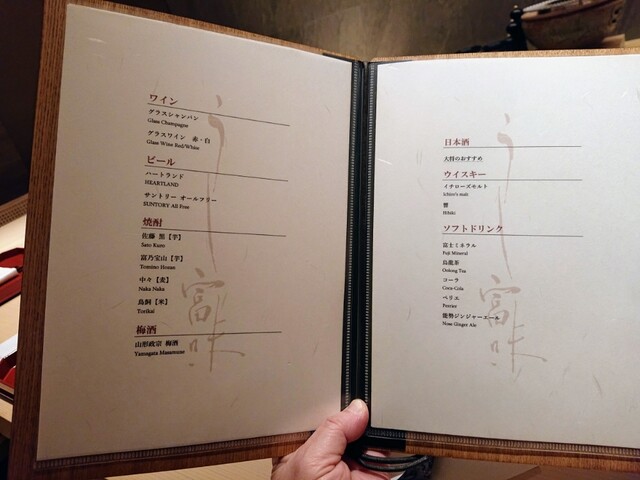 ワイン
グラスシャンパン
Glass Champagne
グラスワイン 赤・白
Glass Wine Red/White
ビール
ハートランド
HEARTLAND
サントリー オールフリー
SUNTORY All Free
焼酎
佐藤 黒【芋】
Sato Kuro
富乃宝山【芋】
Tomino Hozan
中々【麦】
Naka Naka
鳥飼【米】
Torikai
梅酒
山形政宗 梅酒
Yamagata Masamune
日本酒
大将のおすすめ
ウイスキー
イチローズモルト
Ichiro's malt
響
Hibiki
ソフトドリンク
富士ミネラル
Fuji Mineral
烏龍茶
Oolong Tea
コーラ
Coca-Cola
ペリエ
Perrier
能勢ジンジャーエール
Nose Ginger Ale
富味
富味